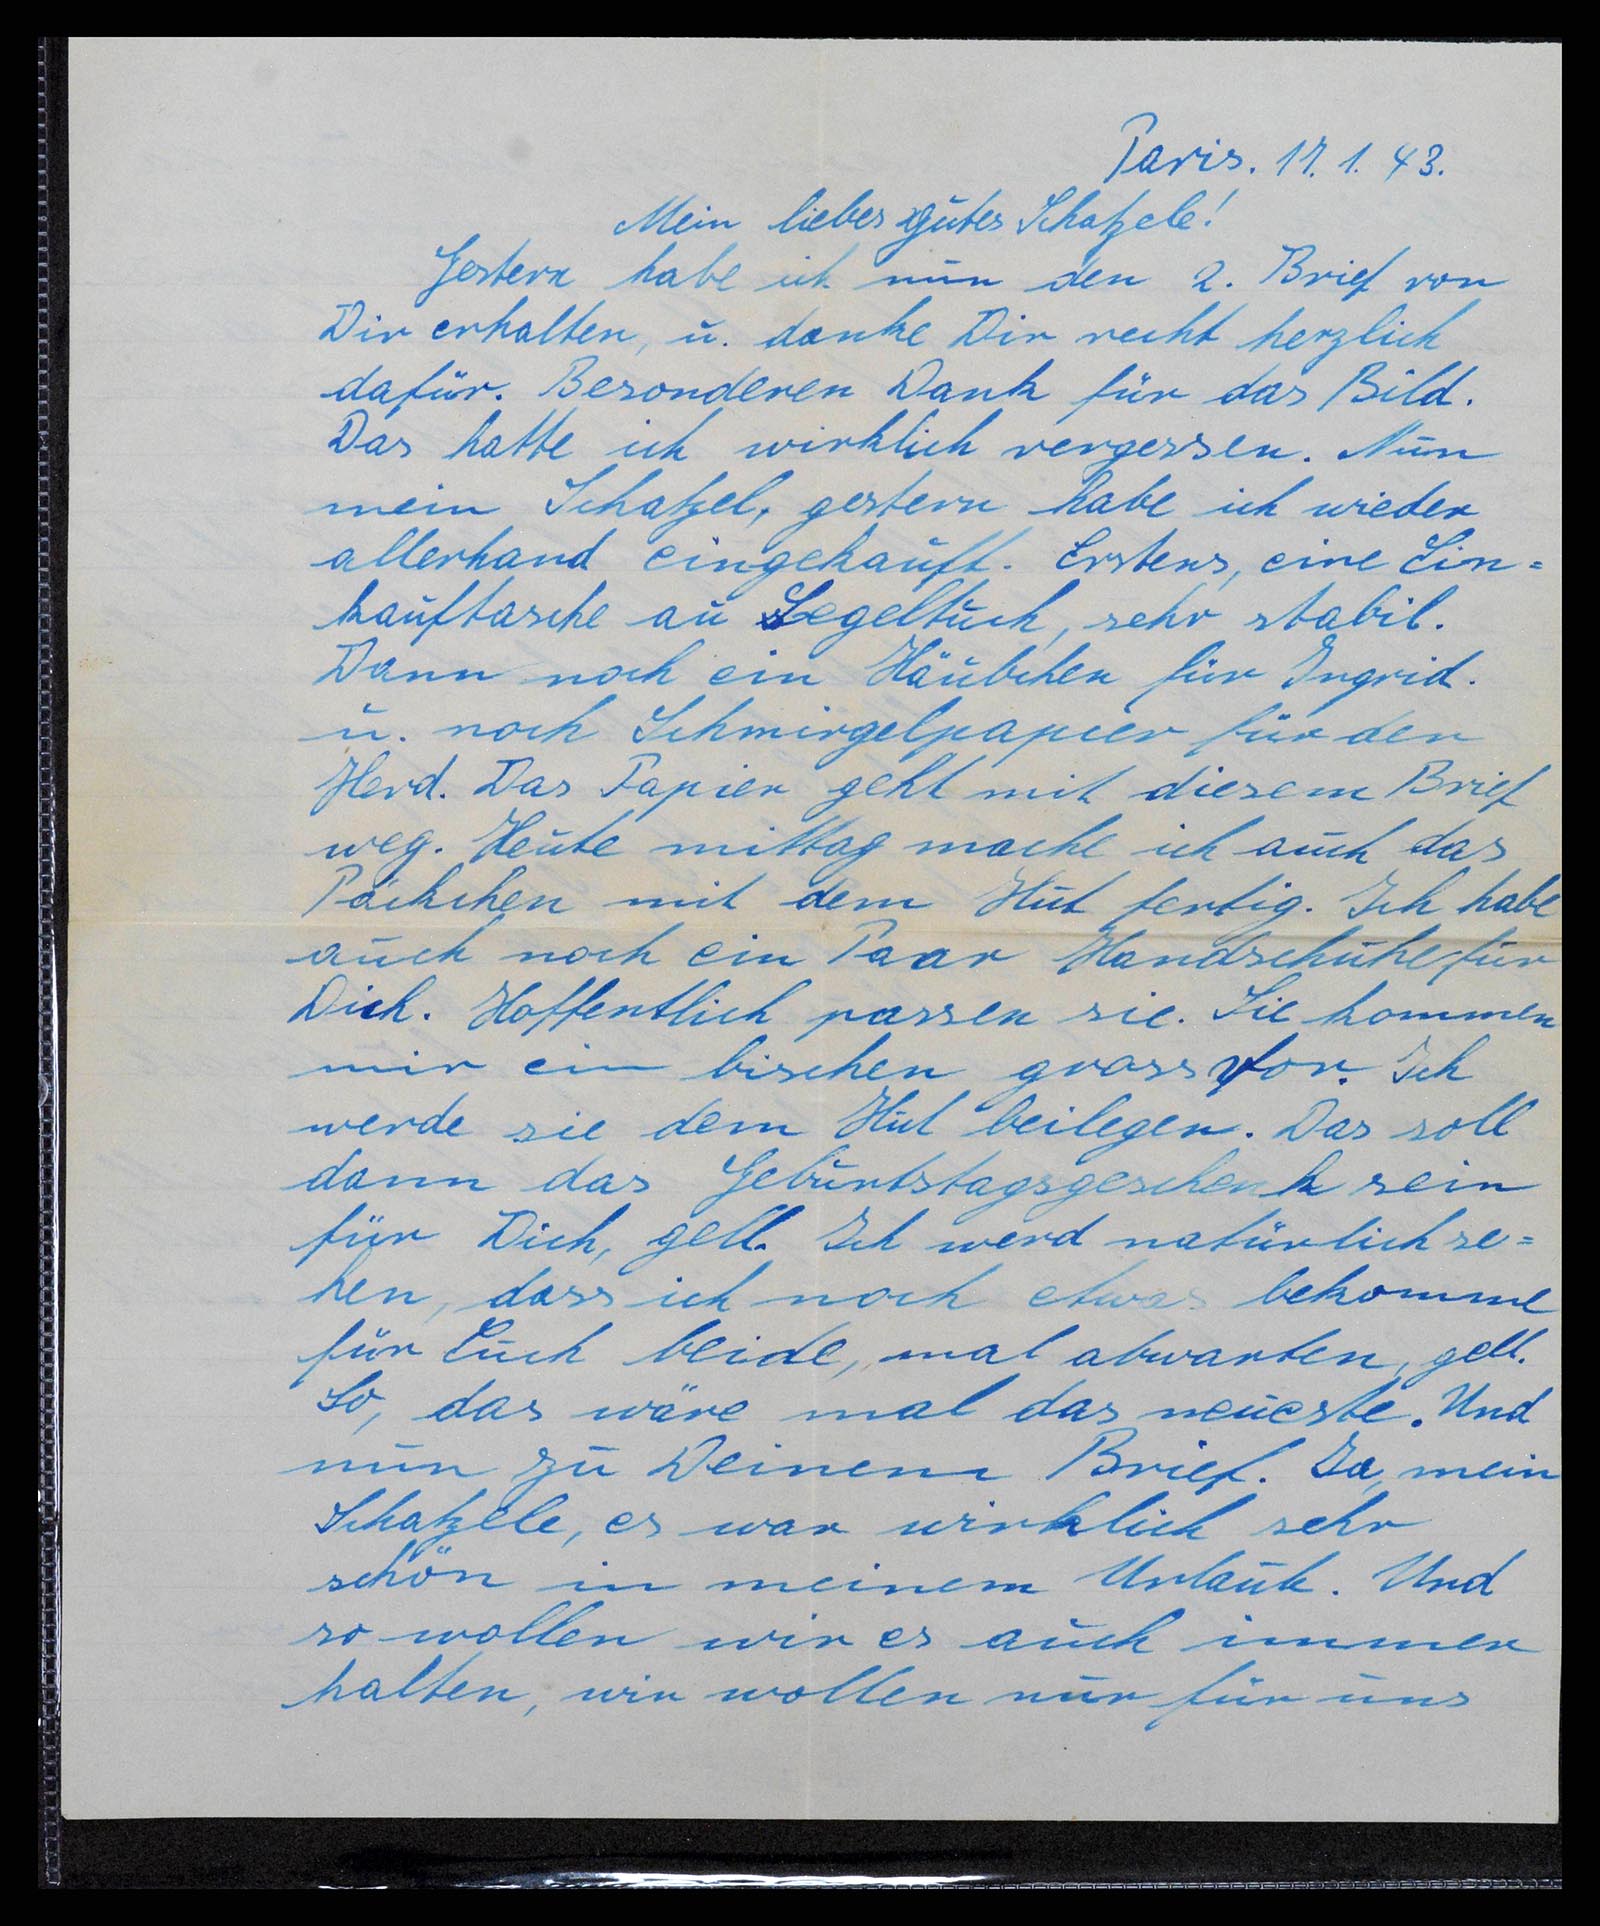 Paris. 17. 1. 43.
Mein liebes gutes Schatzele!
Gestern habe ich nun den 2. Brief von
Dir erhalten, u. danke Dir recht herzlich
dafür. Besonderen Dank für das Bild.
Das hatte ich wirklich vergessen. Nun
mein Schatzel, gestern habe ich wieder
allerhand eingekauft. Erstens, eine Ein=
kauftasche au Segeltuch, sehr stabil.
Dann noch ein Häubchen für Ingrid.
u. noch Schmirgelpapier für den
Herd. Das Papier geht mit diesem Brief
weg. Heute mittag mache ich auch das
Päckchen mit dem Hut fertig. Ich habe
auch noch ein Paar Handschuhe für
Dich. Hoffentlich passen sie. Sie kommen
mir ein bischen gross vor. Ich
werde sie dem Hut beilegen. Das soll
dann das Geburtstagsgeschenk sein
für Dich, gell. Ich werd natürlich se=
hen, dass ich noch etwas bekomme
für Euch beide, mal abwarten, gell.
So, das wäre mal das neueste. Und
nun zu Deinem Brief. Ja, mein
Schatzele, es war wirklich sehr
schön in meinem Urlaub. Und
so wollen wir es auch immer
halten, wir wollen nur für uns